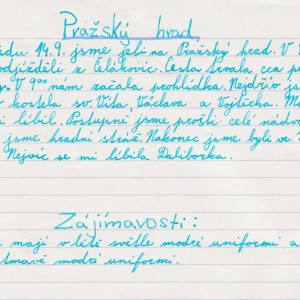 Pražský hrad
ědu 14.9. jsme jeli na Pražský hrad. V
odjížděli z Čelákovic. Cesta trvala cca
V 9⁰⁰ nám začala prohlídka. Nejdřív js
kostela sv. Víta, Václava a Vojtěcha. M
líbil. Postupně jsme prošli celé nádvo
jsme hradní stráž. Nakonec jsme byli ve
Nejvíc se mi líbila Daliborka.
Zájímavosti:
mají v létě světle modré uniformi a
tmavě modré uniformi.